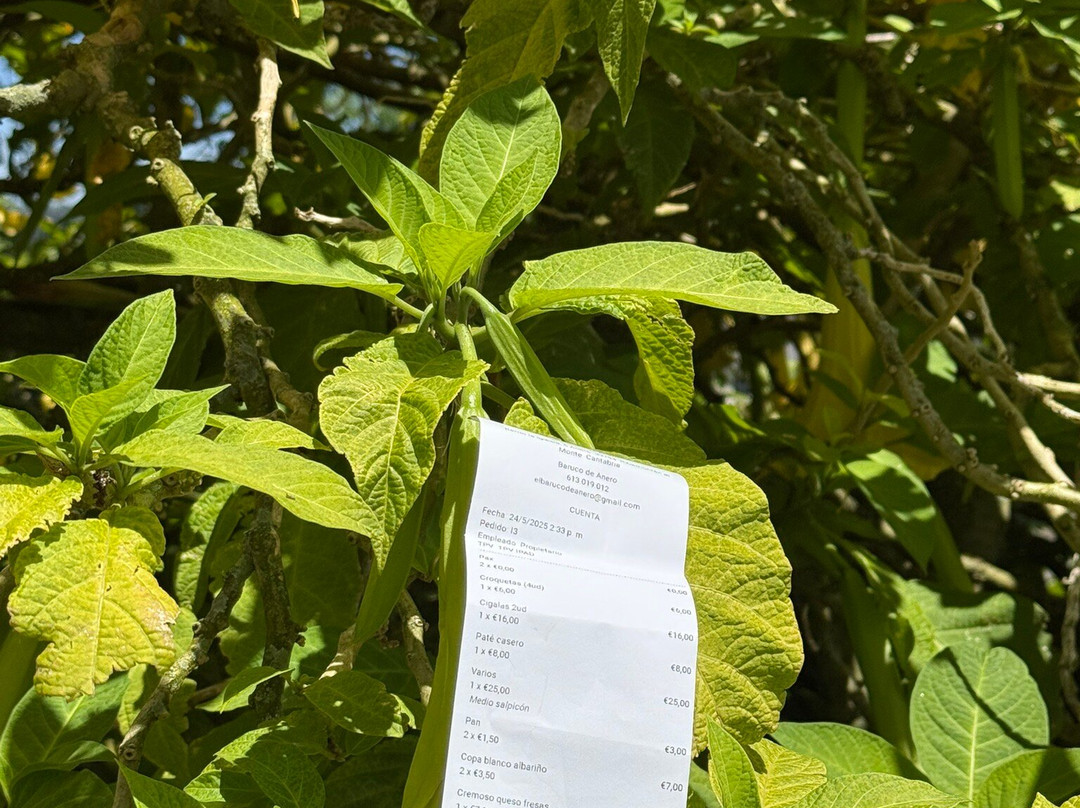 Monte Cantabria
Baruco de Anero
613.019.012
elbarucodeanero@gmail.com
CUENTA
Fecha: 24/5/2025 2:33 p. m.
Pedido: I3
Empleado: Propietario
TPV: TPV IPAD
Pax
2 x €0,00 €0,00
Croquetas (4ud)
1 x €6,00 €6,00
Cigalas 2ud
1 x €16,00 €16,00
Paté casero
1 x €8,00 €8,00
Varios
1 x €25,00 €25,00
Medio salpicón
Pan
2 x €1,50 €3,00
Copa blanco albariño
2 x €3,50 €7,00
Cremoso queso fresas